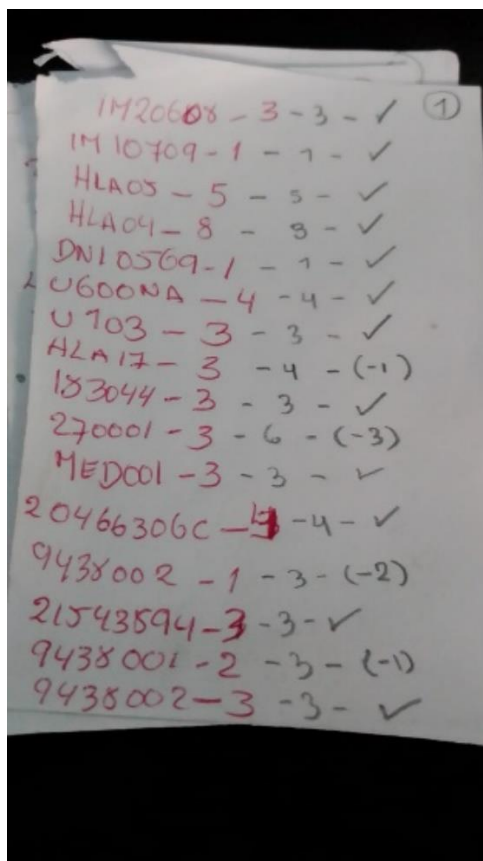 ①
1M20608 - 3 - 3 - ✓
1M10709 - 1 - 1 - ✓
HLA05 - 5 - 5 - ✓
HLA04 - 8 - 8 - ✓
DN10569 - 1 - 1 - ✓
U600NA - 4 - 4 - ✓
U103 - 3 - 3 - ✓
HLA17 - 3 - 4 - (-1)
183044 - 3 - 3 - ✓
270001 - 3 - 6 - (-3)
MED001 - 3 - 3 - ✓
20466306C - 4 - 4 - ✓
9438002 - 1 - 3 - (-2)
21543594 - 3 - 3 - ✓
9438001 - 2 - 3 - (-1)
9438002 - 3 - 3 - ✓